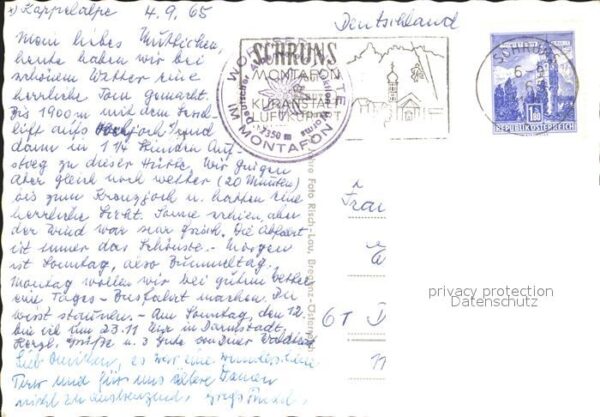 Kappelalpe 4.9.65
Mein liebes Muttichen,
heute haben wir bei
schönem Wetter eine
herrliche Tour gemacht.
Bis 1900 m mit dem Sessel-
lift aufs und
dann in 1 1/4 Stunden Auf-
stieg zu dieser Hütte. Wir gingen
aber gleich noch weiter (20 Minuten)
bis zum Kreuzjoch u. hatten eine
herrliche Sicht. Sonne schien, aber
der Wind war sehr frisch. Die Abfahrt
ist immer das Schönste. - Morgen
ist Sonntag, also Bummeltag,
Montag wollen wir bei gutem Wetter
eine Tages-Busfahrt machen. Du
wirst staunen. - Am Sonntag, den 12.
bin ich um 23.11 Uhr in Darmstadt,
Herzl. Grüße u. 3 Gute von Deiner
es war eine wunderschöne
Tour und für uns ältere Damen
nicht zu anstrengend.
Deutschland
SCHRUNS
MONTAFON
KURANSTALT
LUFTKURORT
WORMSER HÜTTE
IM MONTAFON
2350 m
SCHRUNS
REPUBLIK ÖSTERREICH
Foto Risch-Lau, Bregenz-Österreich
Frau
61 D
privacy protection
Datenschutz